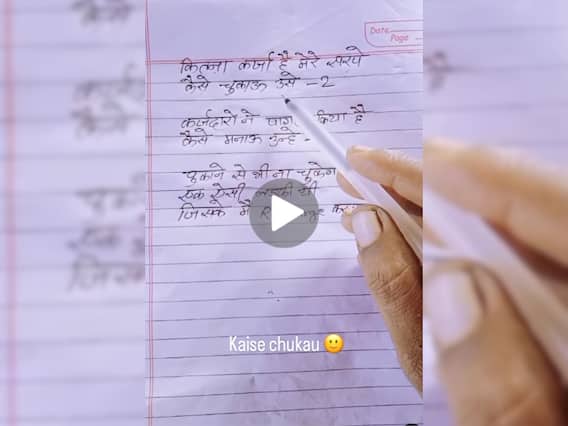 Date
Page
कितना कर्जा है मेरे सरपे
कैसे चुकाऊ उसे -2
कर्जदारो ने पागल किया है
कैसे मनाऊ उन्हे -
चुकाने से भी ना
एक ऐसी
जिसके मै
Kaise chukau 🙂